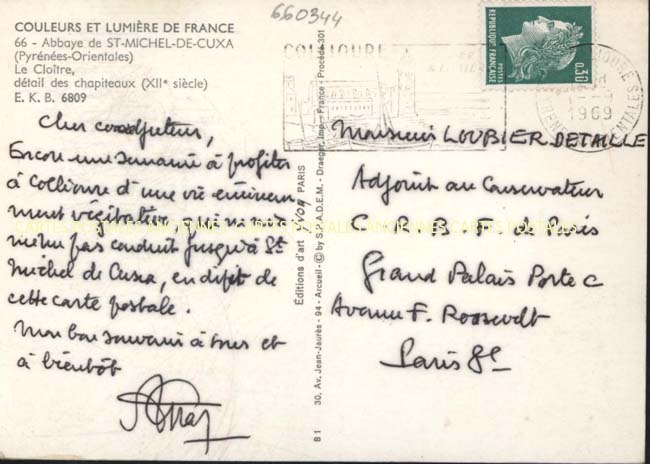 660344
COULEURS ET LUMIÈRE DE FRANCE
66 - Abbaye de ST-MICHEL-DE-CUXA
(Pyrénées-Orientales)
Le Cloître,
détail des chapiteaux (XIIe siècle)
E. K. B. 6809
Cher coadjuteur,
Encore une semaine à profiter
à Collioure d'une vie éminem
ment végétative qui ne m'a
même pas conduit jusqu'à St
Michel de Cuxa, en dépit de
cette carte postale.
Mon bon souvenir à tous et
à bientôt
Éditions d'art YVON PARIS
30, Av. Jean-Jaurès - 94 - Arcueil - © by S.P.A.D.E.M. - Draeger, Imp. - France - Procédé 301
81
COLLIOURE
REPUBLIQUE FRANÇAISE
POSTES
0,30
1969
Monsieur LOUBIER DETAILLE
Adjoint au Conservateur
C. R. B. F. de Paris
Grand Palais Porte C
Avenue F. Roosevelt
Paris 8e
CARTES POSTALES ANCIENNES CARTES POSTALES ANCIENNES CARTES POSTALES